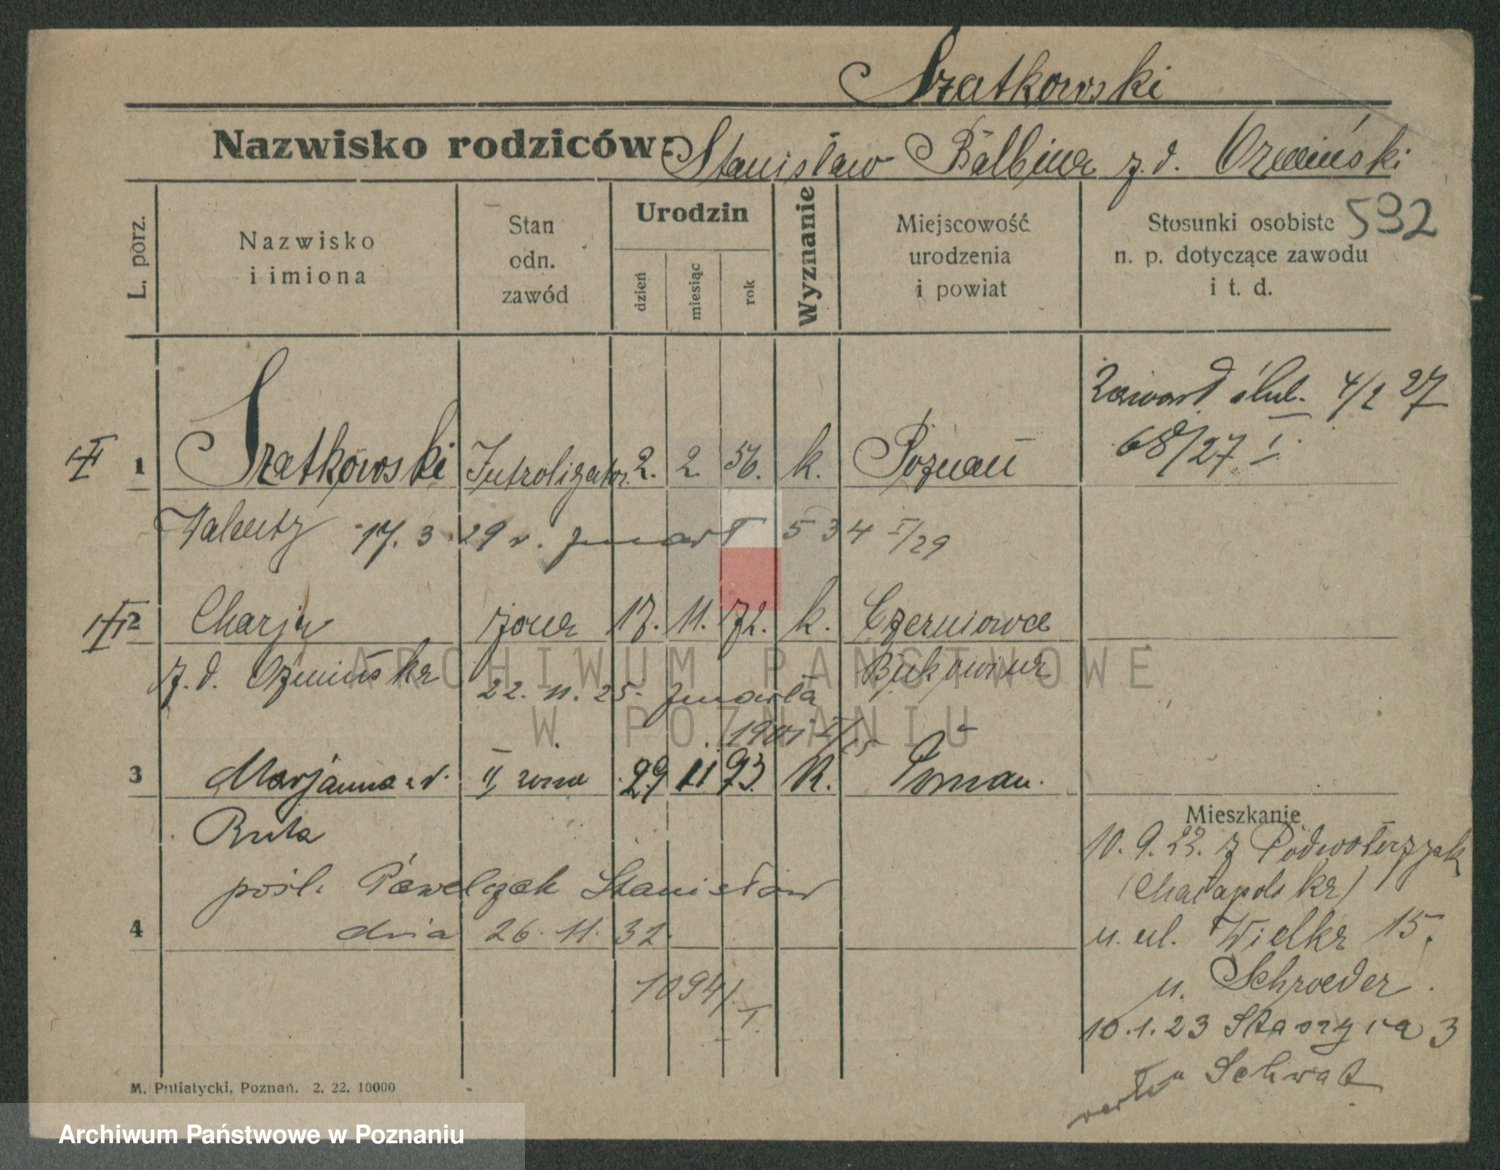 Szatkowski
Nazwisko rodziców: Stanisław Balbina z. d.
592
L. porz.
Nazwisko
i imiona
Stan
odn.
zawód
Urodzin
dzień
miesiąc
rok
Wyznanie
Miejscowość
urodzenia
i powiat
Stosunki osobiste
n. p. dotyczące zawodu
i t. d.
Zawarł ślub. 4/2 27
68/27 I.
1 Szatkowski Introligator 2. 2. 56. k. Poznań
Walenty 17. 3. 29 r. zmarł 534 I/29
2 żona 17. 11. 72. k. Czerniowce
z. d. Bukowina
22. 11. 25. zmarła
3 Marjanna z d. II żona 29 11 93. k. Poznań.
Ruta
pośl. Pawelczak Stanisław
4 dnia 26. 11. 32.
1094/I.
Mieszkanie
10. 9. 22. z Podwołoczysk
u. ul. Wielka 15.
u. Schroeder.
10. 1. 23 Staszyca 3
M. Putiatycki, Poznań. 2. 22. 10000
ARCHIWUM PAŃSTWOWE
W POZNANIU
Archiwum Państwowe w Poznaniu